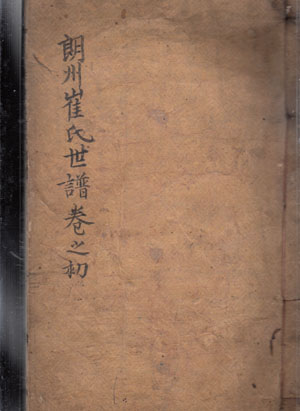 朗州崔氏世譜卷之初